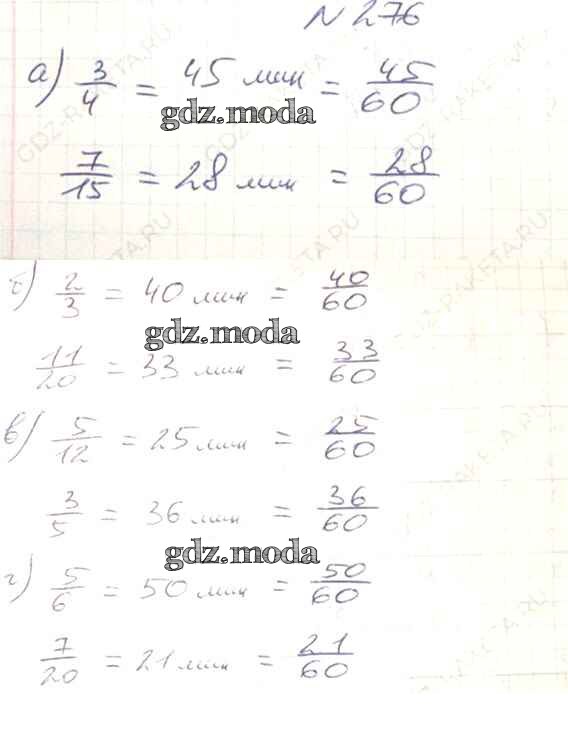 № 276
а) 3/4 = 45 мин = 45/60
gdz.moda
7/15 = 28 мин = 28/60
б) 2/3 = 40 мин = 40/60
gdz.moda
11/20 = 33 мин = 33/60
в) 5/12 = 25 мин = 25/60
3/5 = 36 мин = 36/60
gdz.moda
г) 5/6 = 50 мин = 50/60
7/20 = 21 мин = 21/60